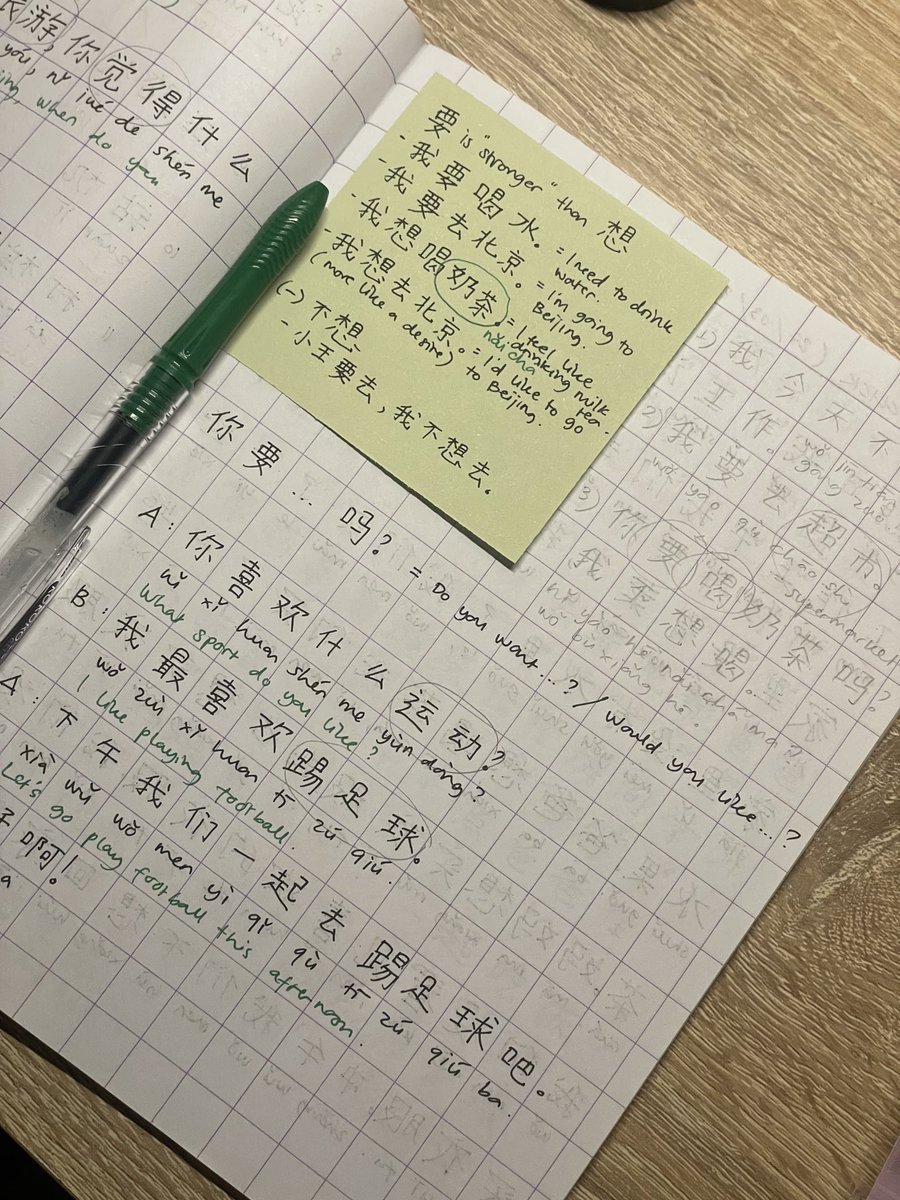 游,你觉得什么
yóu, nǐ jué de shén me
when do you
要 is "stronger" than 想
- 我要喝水。 = I need to drink water.
- 我要去北京。 = I'm going to Beijing.
- 我想喝奶茶。 = I feel like drinking milk tea.
nǎi chá
- 我想去北京。 = I'd like to go to Beijing.
(more like a desire)
(-) 不想
- 小王要去,我不想去。
你要...吗? = Do you want...? / Would you like...?
A: 你喜欢什么运动?
nǐ xǐ huan shén me yùn dòng?
What sport do you like?
B: 我最喜欢踢足球。
wǒ zuì xǐ huan tī zú qiú.
I like playing football.
A: 下午我们一起去踢足球吧。
xià wǔ wǒ men yì qǐ qù tī zú qiú ba.
Let's go play football this afternoon.
啊!
a
1) 我今天不
工作。
2) 我要去超市。
wǒ yào qù chāo shì
supermarket
3) 你要喝奶茶吗?
nǐ yào hē nǎi chá ma?
我不想喝。
wǒ bù xiǎng hē.